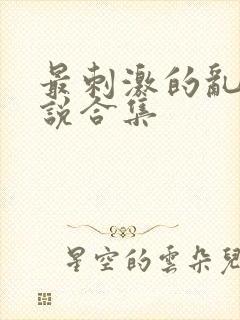 最刺激的亂
說合集
星空的雲朵兒